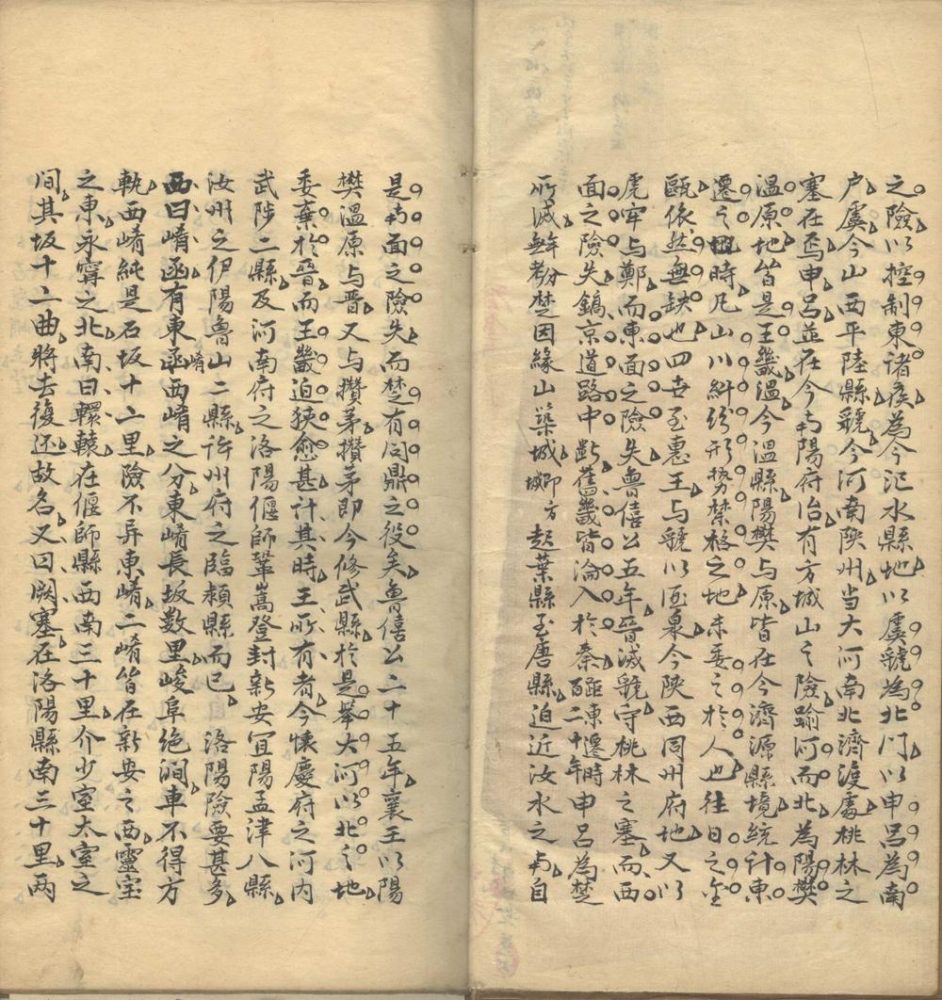 之險以控制東諸侯為今汜水縣地以虞虢為北门以申呂為南
户虞今山西平陸縣虢今河南陝州当大河南北濟渡處桃林之
塞在焉申呂並在今南陽府治有方城山之險踰河而北為陽樊
溫原地皆是王畿溫今溫縣陽樊与原皆在今濟源縣境統计東
遷之時凡山川糾紛形势禁格之地未委之於人也往日之金
甌依然無缺也四世至惠王与虢以酒泉今陝西同州府地又以
虎牢与鄭而東面之險失魯僖公五年晉滅虢守桃林之塞而西
面之險失鎬京道路中断舊畿皆淪入於秦距東遷時百二十年申呂為楚
所滅楚因缘山築城即方城起葉縣至唐縣迫近汝水之南自
是南面之險失而楚有问鼎之役矣魯僖公二十五年襄王以陽
樊溫原与晋又与攢茅攢茅即今修武縣於是舉大河以北之地
委棄於晋而王畿迫狭愈甚计其時王所有者今懷慶府之河内
武陟二縣及河南府之洛陽偃師鞏嵩登封新安宜陽孟津八縣
汝州之伊陽魯山二縣许州府之臨潁縣而已洛陽險要甚多
西曰崤函有東崤西崤之分東崤長坂数里峻阜绝澗車不得方
軌西崤純是石坂十二里險不异東崤二崤皆在新安之西靈宝
之東永寧之北南曰轘轅在偃師縣西南三十里介少室太室之
间其坂十二曲将去復还故名又曰闕塞在洛陽縣南三十里两